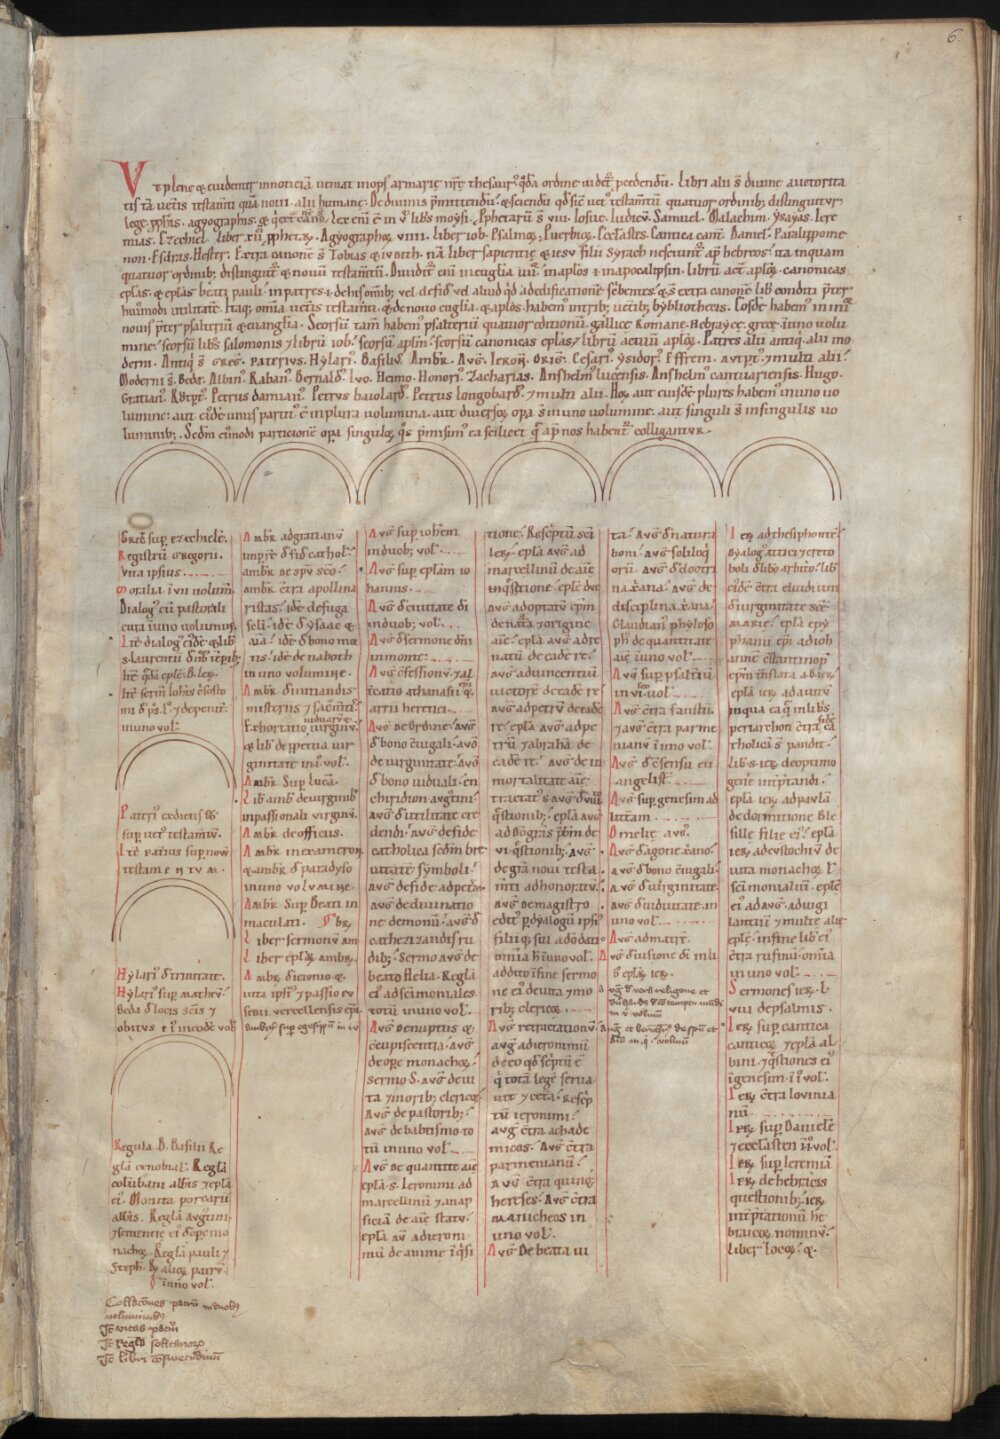 6
Vt plene & euidenter in noticiā ueniat inops armarię nrę thesaur⁹ qdā ordine uidet᷑ pcedendū. Libri alii s̄ diuinę auctorita
tis tā uetis testam̄ti quā noui. alii humanę. De diuinis p̄mittendū. & sciendū qd sic uet᷑ testam̄tū quatuor ordinib; distinguitur
lege. pphis. agyographis. & Lex eni ē in v̄ libis moysi. Pphetarū s̄ viii. Iosue. Iudicū. Samuel. Malachim. Ysayas. Iere
mias. Ezechiel. liber xii pphetaꝝ. Agyographoꝝ viiii. liber iob. Psalmoꝝ. Puerbioꝝ. Ecclastes. Cantica cant̄. Daniel. Paralippome
non. Esdras. Hester. Extra canonē s̄ Tobias & ivdith. nā liber sapientię & iesv filii Syrach nesciunt᷑ ap̄ hebreos. ita inquam
quatuor ordinib; distinguit᷑ & nouū testam̄tū. Diuidit᷑ eni in euglia iiii. in aplos & in apocalipsin. librū act̄ aploꝝ. canonicas
eplas. & eplas beati pauli. in patres. & de his omīb; vel de fide vel aliud qd ad edificationē scbentes. & s̄ extra canonē lib̄ conditi p̄ter
huiusmodi utilitatē. Itaq; omīa uetis testam̄ti. & de nouo euglia. & aplos habem⁹ in trib; uetib; bybliothecis. Eosdē habem⁹ in iiii
nouis p̄ter psalteriū & euanglia. Seorsū tam̄ habem⁹ psalteriū quatuor editionū. gallicę Romanę. Hebraycę. grecę. in uno uolu
mine. seorsū libs̄ salomonis & librū iob. seorsū aplm̄. seorsū canonicas eplas & librū actuū aploꝝ. Patres alii antiq. alii mo
derni. Antiq s̄ Greg. Paterivs. Hylari⁹. Basiliꝰ. Ambr̄. Avg̅. Ieron̄. Orig. Cesari⁹. ysidor⁹. Effrem. & multi alii.
Moderni s̄. Beda. Albin⁹. Raban⁹. Bernald⁹. Ivo. Heimo. Honori⁹. Zacharias. Anshelm⁹ lucensis. Anshelm⁹ cantuariensis. Hugo.
Gratian⁹. Rvtpt⁹. Petrus damian⁹. Petrus baiolard⁹. Petrus longobard⁹. & multi alii. Hoꝝ aut cuiusdē plures habem⁹ in uno uo
lumine. aut eidē unus partit⁹ ē in plura uolumina. aut diuersoꝝ opa s̄ in uno uolumine. aut singuli s̄ in singulis uo
luminib;. Scdm̄ eiusmodi particionē opa singuloꝝ. p̄misim⁹ ea scilicet q ap̄ nos habent᷑ colligantvr.
Greg̅ sup̄ ezechielē.
Registrū Gregorii.
Vita ipsius.
Moralia in vi uolum̄.
Dialog⁹ cū pastorali
cura in uno uolumine.
Itē dialog⁹ eidē & lib̄
S. laurentii
Itē
Itē serm̄ Iohis
in uno vol̄.
Paterii
sup̄ uet᷑ testam̄tv̄.
Itē Pateriꝰ sup̄ nouv̄
testamentvm.
Hylari⁹ d̄ trinitate.
Hylari⁹ sup̄ mathev̄.
Beda d̄ locis scis &
obitvs
Regula .B. Basilii Re
glā cenobial. Reglā
colūbani abbis & eplā
ei⁹. Monita porcarii
abbis. Reglā avgtini
& sententię ei⁹ d̄ ope mo
nachoꝝ. Reglā pauli &
Steph. & alioꝝ patrv̄.
in uno vol.
Collaciones patrū in duobꝫ
voluminibꝫ
Itē vitas patrū
Itē reglā
Itē libri
Ambr̄ ad gratianv̄
impre d̄ fid catholˉ.
ambr̄ de spv̄ sco.
ambr̄ ct̄ra apollina
ristas. idē de fuga
seli. idē d̄ ysaac &
aīa. idē d̄ bono mor
tis. idē de naboth
in uno volumine.
Ambr̄ d̄ initiandis
misteriis & sacm̄tis.
Exhortatio virginv̄.
& lib̄ de ppetua uir
ginitate in i. vol.
Ambr̄ Sup Lucā.
Lib̄ amb̄ de virginib⁹
in passionali virginv̄.
Ambr̄ de officiis.
Ambr̄ in exameron
& ambr̄ d̄ paradyso
in uno volvmine.
Ambr̄ Sup̄ Beati in
maculati.
Liber sermonv̄ am
Liber eplaꝝ ambr̄.
Ambr̄
uita ipsi⁹ & passio ev
sebii vercellensis epi
Avg̅ sup iohem̄
in duob; vol.
Avg̅ sup̄ eplam io
hannis.
Avg̅ d̄ ciuitate di
in duob; vol.
Avg̅ d̄ sermone dn̄i
in monte.
Avg̅ cfessionv̄. & al
tcatio athanasii &
arrii heretici.
Avg̅ de ordine. avg̅
d̄ bono ciugali. avg̅
de uirginitate. avg̅
d̄ bono uiduali. en
chiridion avgtini.
avg̅ d̄ utilitate cre
dendi. avg̅ de fide
catholica scdm bre
uitatē symboli.
avg̅ de fide ad petrū.
avg̅ de diuinatio
ne demonū. avg̅ d̄
cathezizandis ru
dib;. Sermo avg̅ de
beato Helia. Reglā
ei⁹ ad sci moniales.
totū in uno vol.
Avg̅ de nuptiis &
ccupiscentia. avg̅
de ope monachoꝝ.
sermo S. avg̅ de ui
ta & morib; clericoꝝ
avg̅ de pastorib;.
avg̅ de babtismo. to
tū in uno vol.
Avg̅ de quantitate aīe
eplā S. Ieronimi ad
marcellinū & anap
siciā de aīe statv.
eplā av̄ ad ieroni
mū de anime iq̄si
tione. Rescptū sci
Ier̄. eplā avg̅ ad
marcellinū de aīe
inqsitione.
avg̅ ad optatū epm̄
de natā & origine
aīe. epl̄a avg̅ ad re
natū de eadē re.
avg̅ ad uincentiū
uictorē de eadē re
avg̅ ad petrū de eadē
re. epl̄a avg̅ ad pe
trū & abrahā de
eadē re. avg̅ de in
mortalitate aīe.
tractat⁹ s. avg̅
qstionib;. epl̄a avg̅
ad pb̄m de
vi. qstionib;. avg̅
de gr̄a noui testa
mti ad honoratv̄.
avg̅ de magistro
edit⁹ p dyalogū ipsi⁹
filiiq; sui adodati.
omīa h̄ in uno vol.
addito in fine sermo
ne ei⁹ de uita & mo
rib; clericoꝝ.
Avg̅ retractationv̄.
avg̅ ad ieronimū
de eo qd scptū ē
q totā legē serua
uit & ceta. Rescp
tū ieronimi.
avg̅ ct̄ra achade
micos. avg̅ ct̄ra
parmenianū.
avg̅ ct̄ra quinq;
hereses. avg̅ ct̄ra
manicheos in
uno vol.
Avg̅ de beata ui
ta. Avg̅ d̄ natura
boni. Avg̅ soliloq
orū. Avg̅ d̄ doctri
na xiana. Avg̅ de
disciplina xiana.
Claudian⁹ phyloso
ph⁹ de quantitate
aīe in uno vol.
Avg̅ sup psaltiū
in vi. vol.
Avg̅ ct̄ra faustū.
& avg̅ ct̄ra parme
nianv̄ i uno vol.
Avg̅ d̄ csensu eu
angelist̄.
Avg̅ sup genesim ad
litt̄am.
Omelię avg̅.
Avg̅ d̄ agone xiano.
Avg̅ d̄ bono ciugali.
avg̅ d̄ uirginitate.
avg̅ d̄ uiduitate. in
uno vol.
Avg̅ ad
Avg̅ d̄ uisione di in li
b̄ eplaꝝ ier̄.
Avg̅ d̄ vera religione et
in i. volum̄
Ier̄ ad thesiphontē.
dyalog⁹ attici & creto
boli d̄ libo arbitio. lib̄
eidē ct̄ra eluidium
d̄ uirginitate scē
marię. epla epy
phanii epi ad ioh
annē cstantinop
epm̄
epla ier̄ ad auitv̄
in qua ea q in libs̄
periarchon ct̄ra fidē ca
tholicā s̄ pandit.
Lib̄ S. ier̄ de optimo
gene intp̄tandi.
epl̄a ier̄ ad pavlā
de dormitione Ble
sille filie ei⁹. epl̄a
ier̄ ad evstochiv̄ de
uita monachoꝝ l̄
sci monialiū. eplę
ei⁹ ad avg̅. ad uigi
lantiū & multę alię
eplę. in fine lib̄ ei⁹
ct̄ra rufinū. omīa
in uno vol.
Sermones ier̄. l.
viii de psalmis.
Ier̄ sup cantica
canticoꝝ & epl̄a al
bini. & qstiones ei⁹
i genesim. i i vol.
Ier̄ ct̄ra Iovinia
nū.
Ier̄ sup Danielē
& ecclasten i i vol.
Ier̄ sup Ieremiā
Ier̄ de hebraicis
questionib;. ier̄
intp̄tationū he
braicoꝝ nominv̄.
Liber locoꝝ. q.